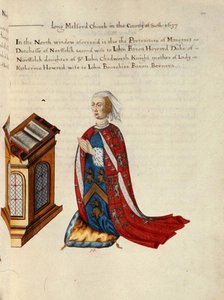 Long Melford Church in the County of Suff. 1637
In the North window aforesaid is that the Portraiture of Margaret
Dutchesse of Norffolk second wife to John Baron Howard Duke of
Norffolk daughter of Sr John Chedworth Knight mother of Lady
Katherine Howard wife to John Bourchier Baron Berners.